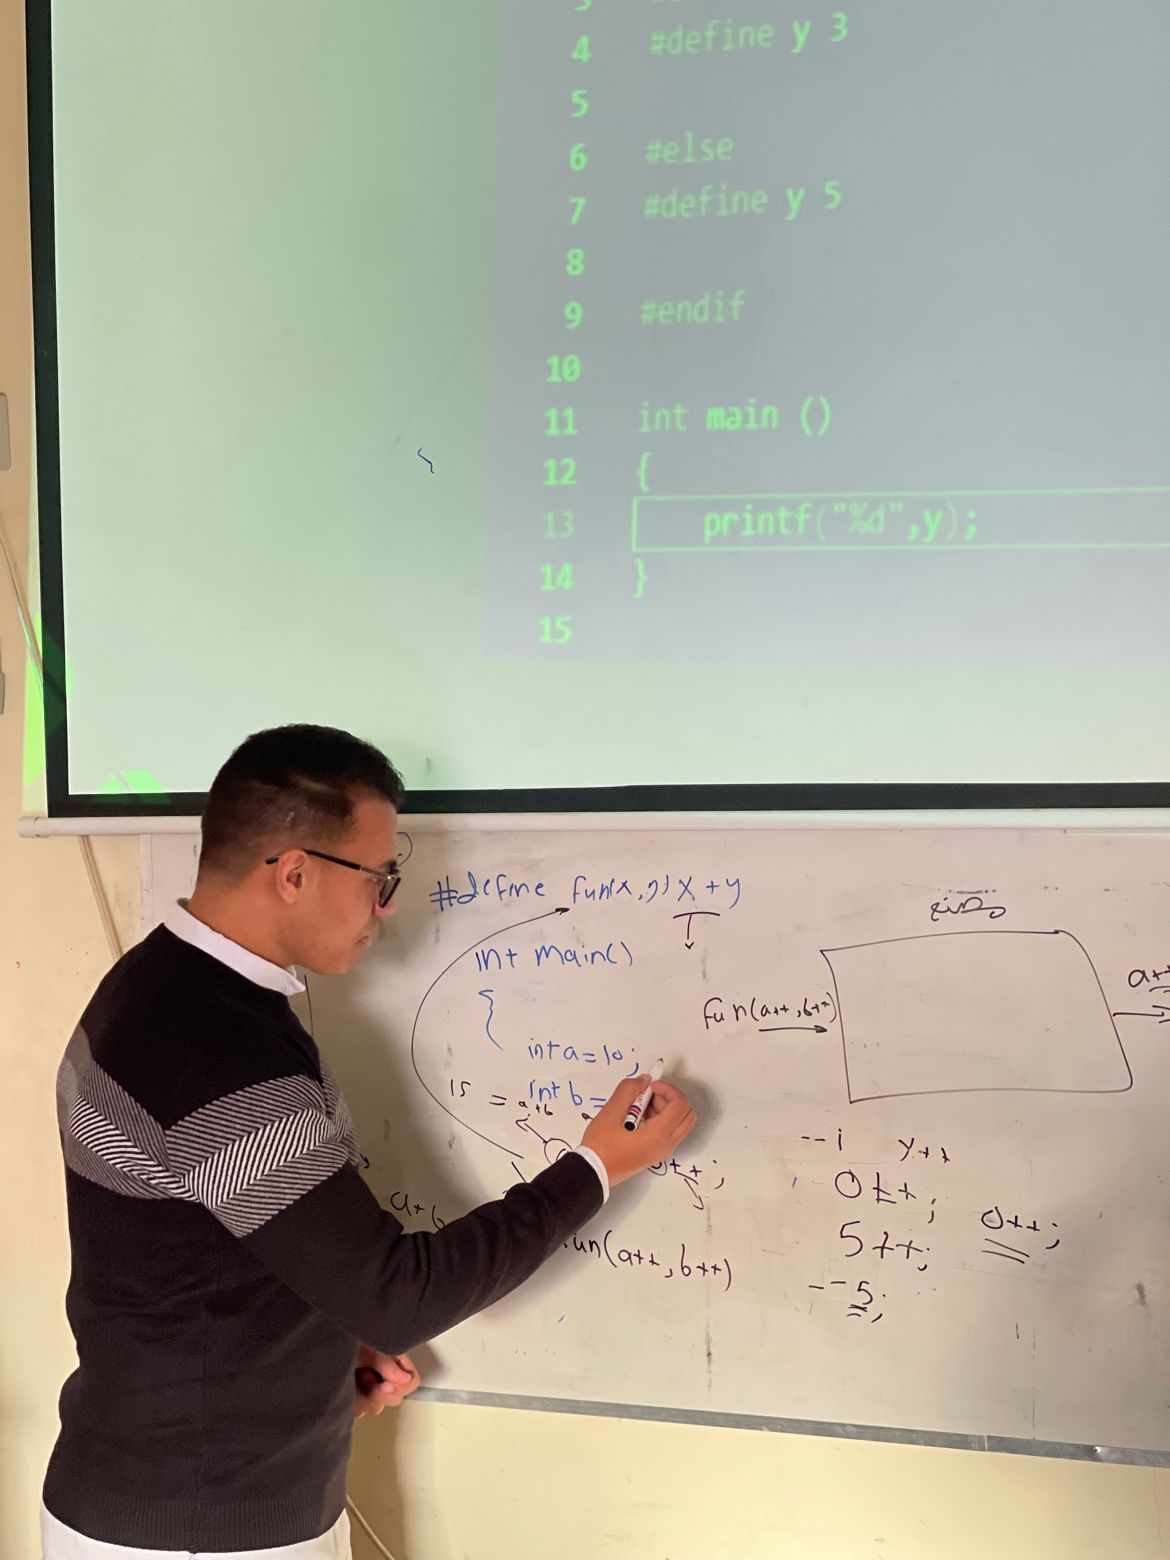 4 #define y 3
5
6 #else
7 #define y 5
8
9 #endif
10
11 int main ()
12 {
13 printf("%d",y);
14 }
15
#define fun(x,y) x + y
int main()
{
int a = 10;
15 = int b =
a+b
++;
a+b
un(a++,b++)
مصنع
fun(a++,b++)
a++
--i y++
0++;
5++; 0++;
--5;